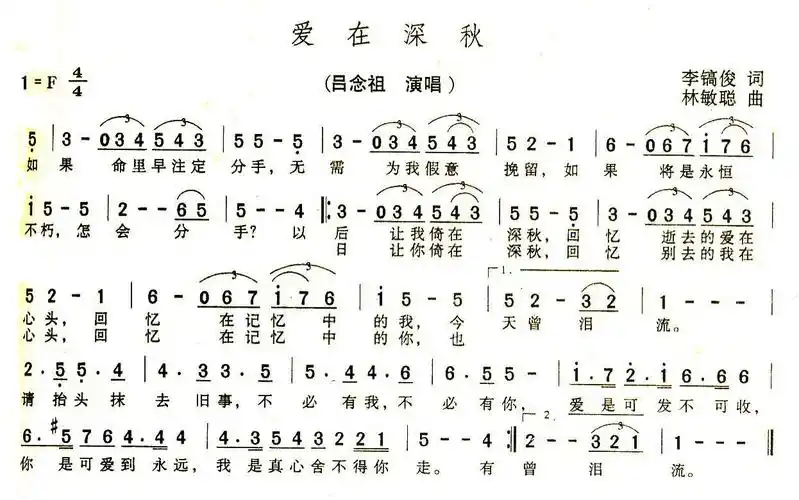 爱在深秋
1=F 4/4
(吕念祖 演唱)
李镐俊 词
林敏聪 曲
5 | 3 - 034 543 | 55 5 - 5 | 3 - 034 543 | 52 - 1 | 6 - 067 176 |
如果 命里早注定 分手,无需 为我假意 挽留,如果 将是永恒
15 - 5 | 2 - - 65 | 5 - - 4 |: 3 - 034 543 | 55 5 - 5 | 3 - 034 543 |
不朽,怎会 分手? 以后 让我倚在 深秋,回忆 逝去的爱在
日 让你倚在 深秋,回忆 别去的我在
52 - 1 | 6 - 067 176 | 15 - 5 | 1. 52 - 32 | 1 - - - |
心头,回忆 在记忆中 的我,今 天曾泪 流。
心头,回忆 在记忆中 的你,也
2.5 5.4 | 4.3 3.5 | 5.4 4.6 | 6.5 5 - | 1.7 2.1 6.6 6 |
请抬头抹去旧事,不必有我,不必有你, 爱是可发不可收,
6.#5 764 4.4 | 4.3 543 221 | 5 - - 4 :| 2. 2 - - 321 | 1 - - - ||
你是可爱到永远,我是真心舍不得你 走。有 曾泪 流。